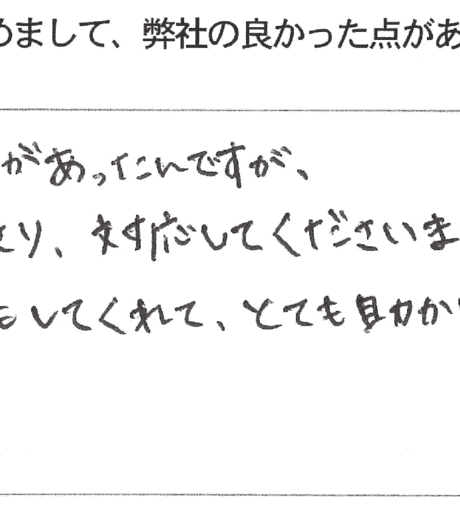 めまして、弊社の良かった点があ
があったんですが、
とり、対応してくださいま
してくれて、とても助か